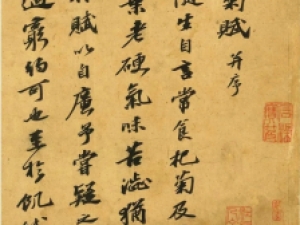 菊賦 并序
隨生自言常食杞菊及
葉老硬氣味苦澀猶
賦以自廣予嘗疑之
遇窮約可也至於飢